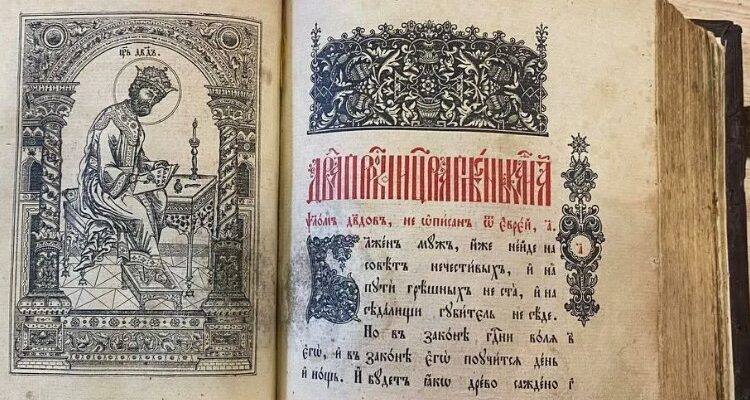 цр҃ь дв҃дъ.
ѱало́мъ дв҃довъ, не ѡ҆писанъ ѿ є҆врей, а҃.
Блаженъ мужъ, и҆же нейде на
совѣтъ нечестивыхъ, и҆ на
пути грѣшныхъ не ста, и҆ на
сѣдалищи губитель не сѣде.
Но въ законѣ гд҇ни волѧ
є҆гѡ, и҆ въ законѣ є҆гѡ поучитсѧ день
и҆ нощь. И҆ будетъ ꙗ҆ко древо саждено
а҃